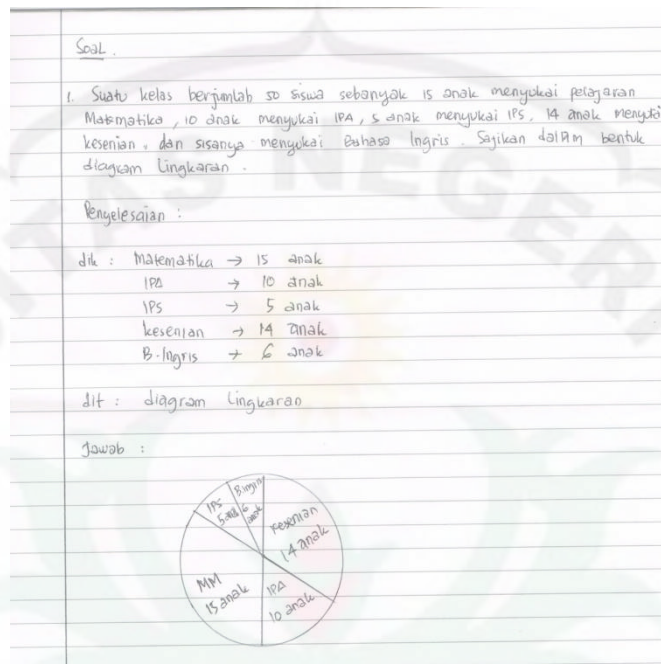 Soal.
1. Suatu kelas berjumlah 50 siswa sebanyak 15 anak menyukai pelajaran
Matematika, 10 anak menyukai IPA, 5 anak menyukai IPS, 14 anak menyukai
kesenian, dan sisanya menyukai Bahasa Ingris. Sajikan dalam bentuk
diagram Lingkaran.
Penyelesaian :
dik : Matematika → 15 anak
IPA → 10 anak
IPS → 5 anak
kesenian → 14 anak
B. Ingris → 6 anak
dit : diagram Lingkaran
Jawab :
IPS
5 anak
B. Ingris
6
anak
Kesenian
14 anak
MM
15 anak
IPA
10 anak
ITAS NEGERI